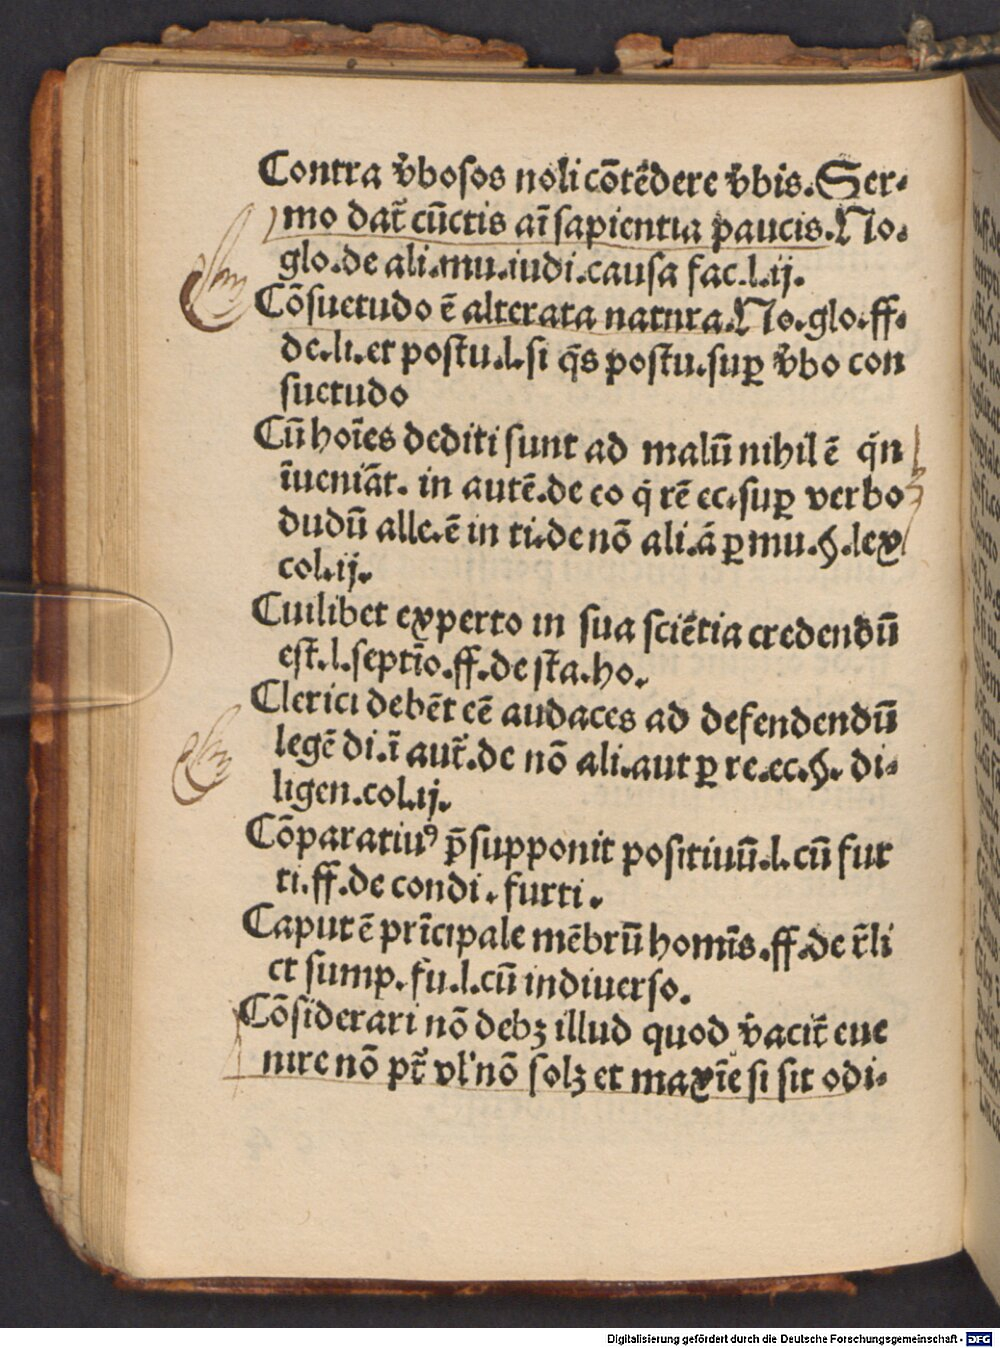 Contra v̄bosos noli cōtēdere v̄bis. Ser-
mo dat̄ cūctis aī sapientia paucis. No.
glo. de ali. mu. iudi. causa fac. l. ij.
Cōsuetudo ē alterata natura. No. glo. ff.
de. li. et postu. l. si q̄s postu. suꝑ v̄bo con
suetudo
Cū hoīes dediti sunt ad malū nihil ē q̄n
īueniāt. in autē. de eo q̄ rē ec. suꝑ verbo
dudū alle. ē in ti. de nō ali. á ꝑmu. §. lex
col. ij.
Cuilibet experto in sua sciētia credendū
est̄. l. septīo. ff. de sta. ho.
Clerici debēt eē audaces ad defendendū
legē di. ī aut̄. de nō ali. aut ꝑ re. ec. §. di-
ligen. col. ij.
Cōparatiuꝰ p̄supponit positiuū. l. cū fur
ti. ff. de condi. furti.
Caput ē prīcipale mēbrū homīs. ff. de r̄li
ct sump. fu. l. cū in diuerso.
Cōsiderari nō debꝫ illud quod v̄acit̄ eue
nire nō pt̄ vl' nō solꝫ et maxīe si sit odi-
Digitalisierung gefördert durch die Deutsche Forschungsgemeinschaft - DFG